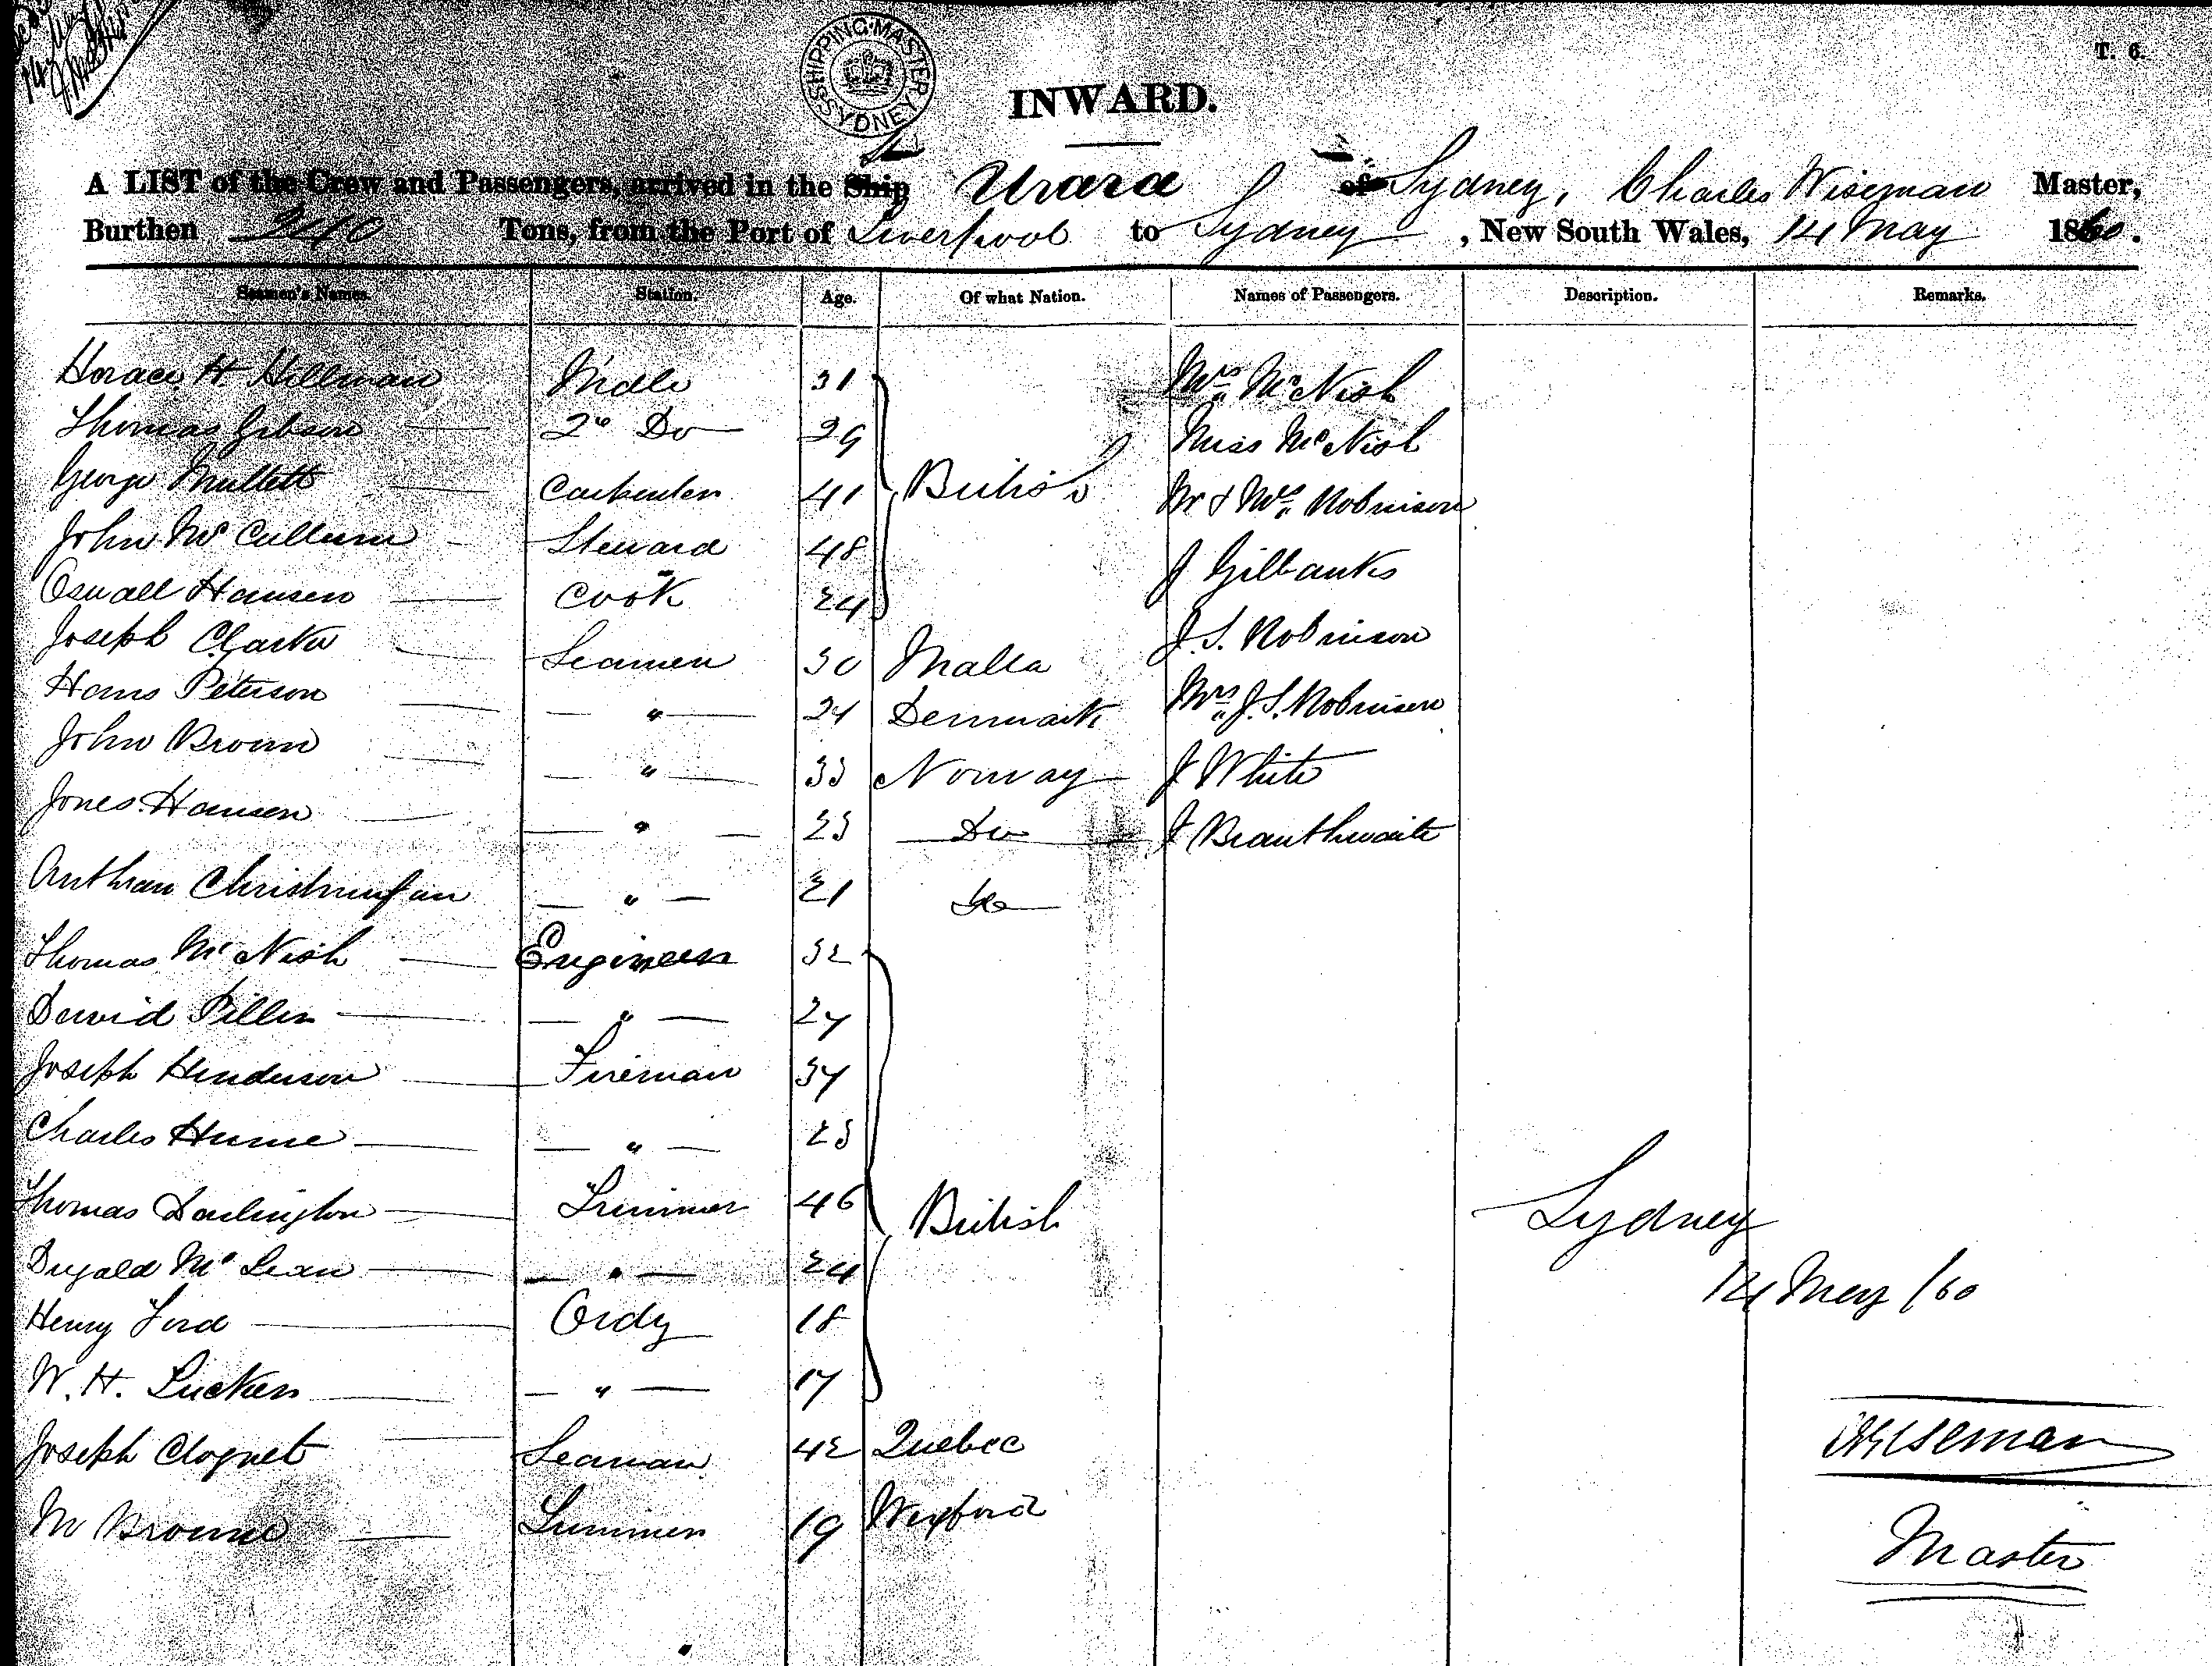 SHIPPING MASTER SYDNEY
T. 6.
INWARD.
A LIST of the Crew and Passengers, arrived in the Ship Urara of Sydney, Charles Wiseman Master,
Burthen 240 Tons, from the Port of Liverpool to Sydney, New South Wales, 14 May 1860.
Seamen's Names. Station. Age. Of what Nation. Names of Passengers. Description. Remarks.
Horace H Hillman Mate 31 Mrs McNish
Thomas Gibson 2d Do 29 Miss McNish
George Mullett Carpenter 41 British Mr & Mrs Robinson
John McCullum Steward 48 J Gilbanks
Oswall Hansen Cook 24 J. S. Robinson
Joseph Clarke Seamen 30 Malta Mrs J. S. Robinson
Hans Peterson " 24 Denmark J White
John Brown " 33 Norway J Branthwaite
Jones Hansen " 23 Do
Christian " 21 Do
Thomas McNish Engineer 32
David " 27
Joseph Henderson Fireman 37
Charles Hume " 23
Thomas Darlington Trimmer 46 British
Dugald McLean " 24
Henry Ford Ordy 18
W. H. " 17
Joseph Clognet Seaman 42 Quebec
M Browne Trimmer 19 Wexford
Sydney
14 May /60
Wiseman
Master